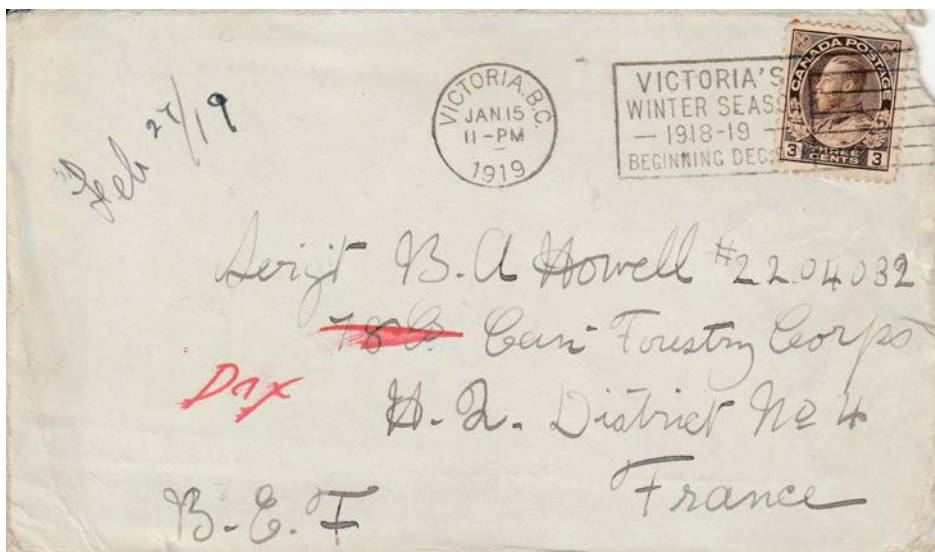 Feb 27/19
VICTORIA.B.C.
JAN 15
11-PM
1919
VICTORIA'S
WINTER SEAS
1918-19
BEGINNING DEC.
CANADA POSTAGE
3 THREE CENTS 3
Sergt B.A Howell #2204032
78 Co. Can Forestry Corps
Dax
H.Q. District No 4
France
B.E.F